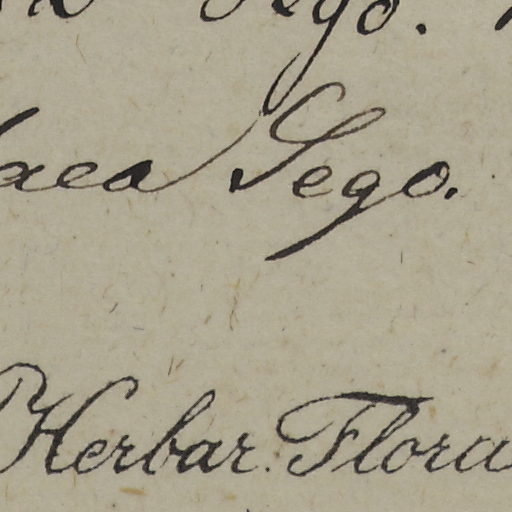 Sego.
aea Sego.
Herbar. Flora